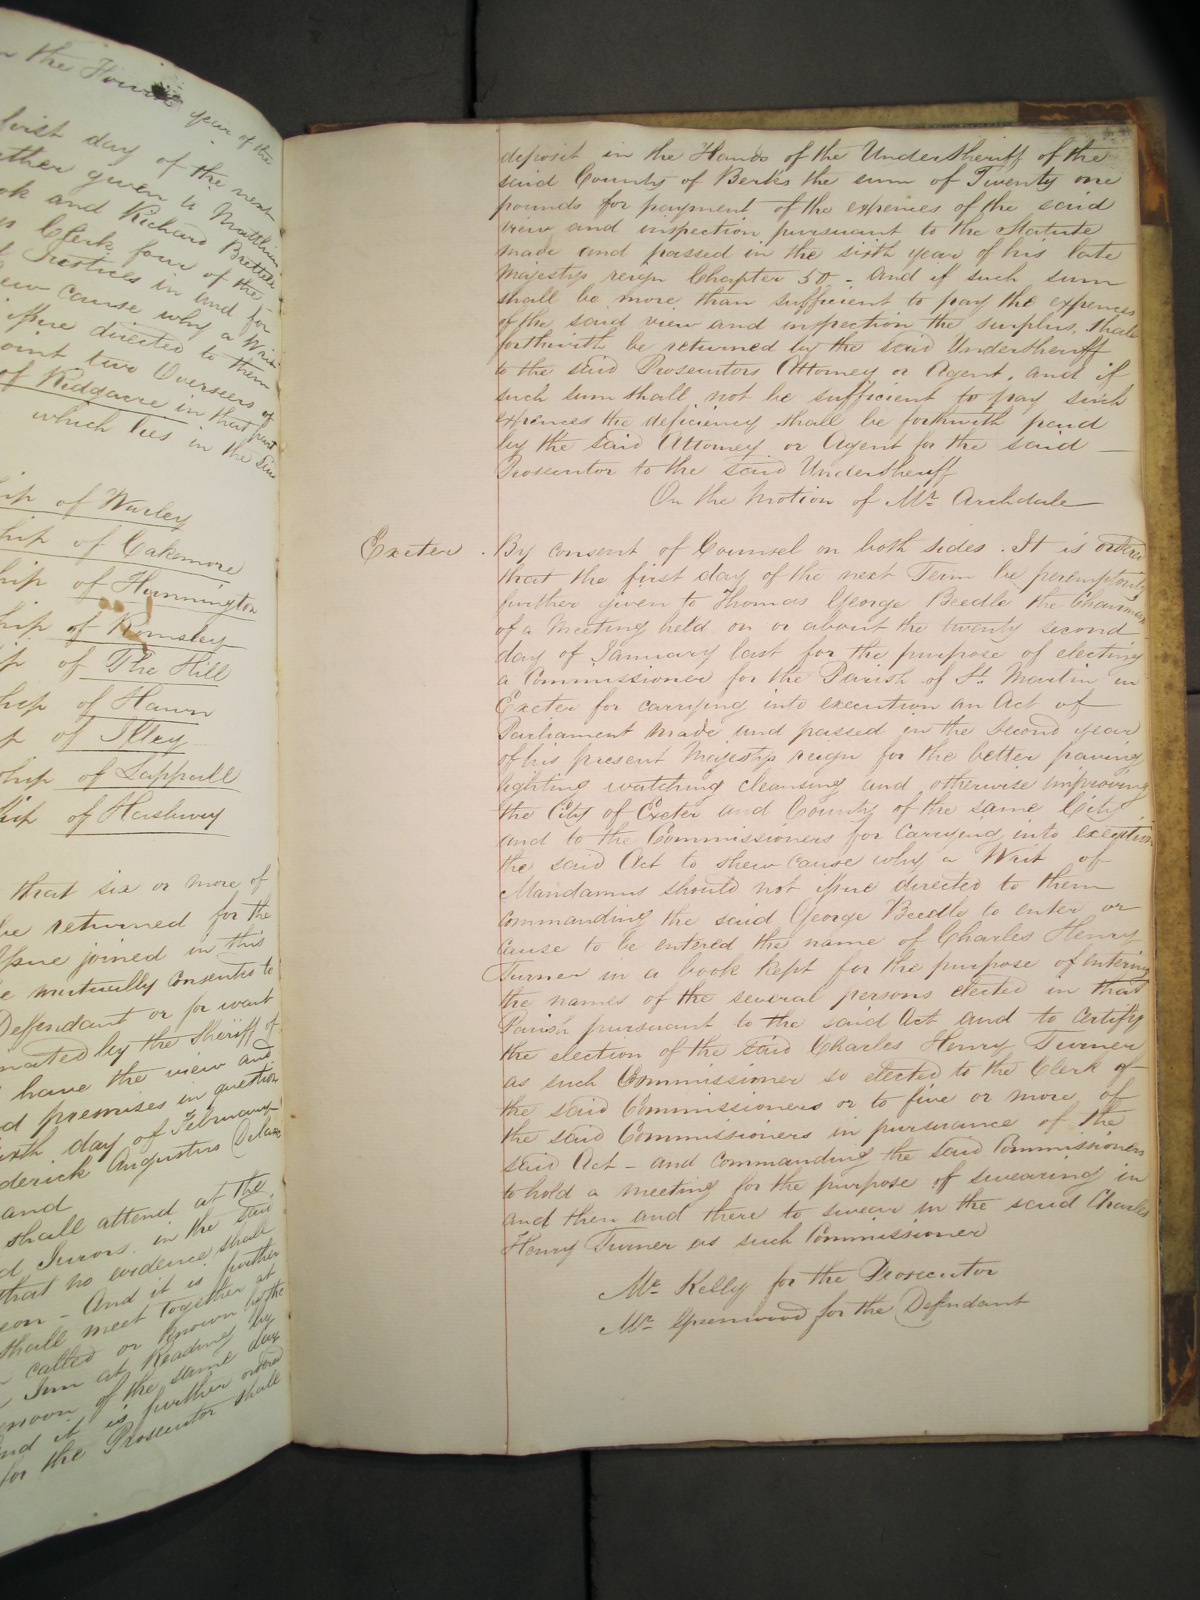 the Fourth year of the
first day of the next
given to Matthias
and Richard Brettell
Clerk four of the
Justices in and for
cause why a Writ
issue directed to them
two Overseers of
of Ridgacre in that part
which lies in the said
of Warley
of Cakemore
of Hunnington
of Romsley
of The Hill
of Hawn
of Illey
of Lappall
of Hasbury
that six or more of
be returned for the
Issue joined in this
mutually consented to
Deffendant or for want
by the Sheriff of
have the view and
premises in question
day of February
Augustus
and
shall attend at the
Jurors in the said
that no evidence shall
And it is further
shall meet together at
called or known by the
Inn at Reading by
of the same day
And it is further ordered
for the Prosecutor shall
deposit in the Hands of the Undersheriff of the
said County of Berks the sum of Twenty one
pounds for payment of the expences of the said
view and inspection pursuant to the Statute
made and passed in the sixth year of his late
Majestys reign Chapter 50 - and if such sum
shall be more than sufficient to pay the expences
of the said view and inspection the surplus shall
forthwith be returned by the said Undersheriff
to the said Prosecutors Attorney or Agent, and if
such sum shall not be sufficient to pay such
expences the deficiency shall be forthwith paid
by the said Attorney or Agent for the said
Prosecutor to the said Undersheriff
On the Motion of Mr. Archdale
Exeter. By consent of Counsel on both sides. It is ordered
that the first day of the next Term be peremptorily
further given to Thomas George Beedle the Chairman
of a Meeting held on or about the twenty second
day of January last for the purpose of electing
a Commissioner for the Parish of St. Martin in
Exeter for carrying into execution an Act of
Parliament made and passed in the second year
of his present Majestys reign for the better paving
lighting watching cleansing and otherwise improving
the City of Exeter and County of the same City
and to the Commissioners for carrying into execution
the said Act to shew cause why a Writ of
Mandamus should not issue directed to them
commanding the said George Beedle to enter or
cause to be entered the name of Charles Henry
Turner in a book kept for the purpose of entering
the names of the several persons elected in that
Parish pursuant to the said Act and to certify
the election of the said Charles Henry Turner
as such Commissioner so elected to the Clerk of
the said Commissioners or to five or more of
the said Commissioners in pursuance of the
said Act - and commanding the said Commissioners
to hold a meeting for the purpose of swearing in
and then and there to swear in the said Charles
Henry Turner as such Commissioner
Mr. Kelly for the Prosecutor
Mr. Greenwood for the Defendant